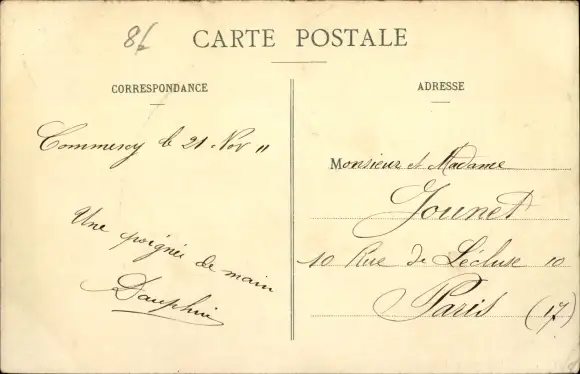 86
CARTE POSTALE
CORRESPONDANCE
Commercy le 21 Nov 11
Une poignée de main
Dauphin
ADRESSE
Monsieur et Madame
Jounet
10 Rue de Lécluse 10
Paris (17)